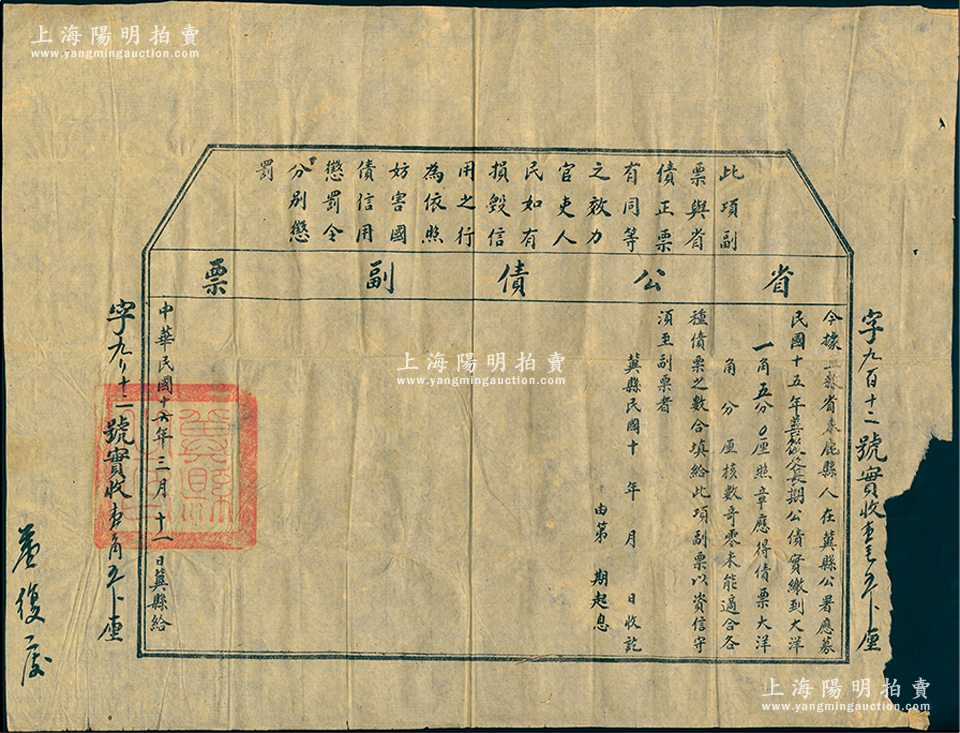 上海陽明拍賣
www.yangmingauction.com
此項副
票與省
債正票
有同等
之效力
官吏人
民如有
損毀信
用之行
為依照
妨害國
債信用
懲罰令
分別懲
罰
省公債副票
字九百十二號實收
今據 省束鹿縣人在冀縣公署應募
民國十五年 長期公債實繳到大洋
一角五分0厘照章應得債票大洋
角 分 厘核數奇零未能適合各
種債票之數合填給此項副票以資信守
須至副票者
冀縣民國十 年 月 日收訖
由第 期起息
上海陽明拍賣
www.yangmingauction.com
中華民國十六年三月十一日冀縣給
冀縣
字九 十二號實收 角五 厘
上海陽明拍賣
www.yangmingauction.com